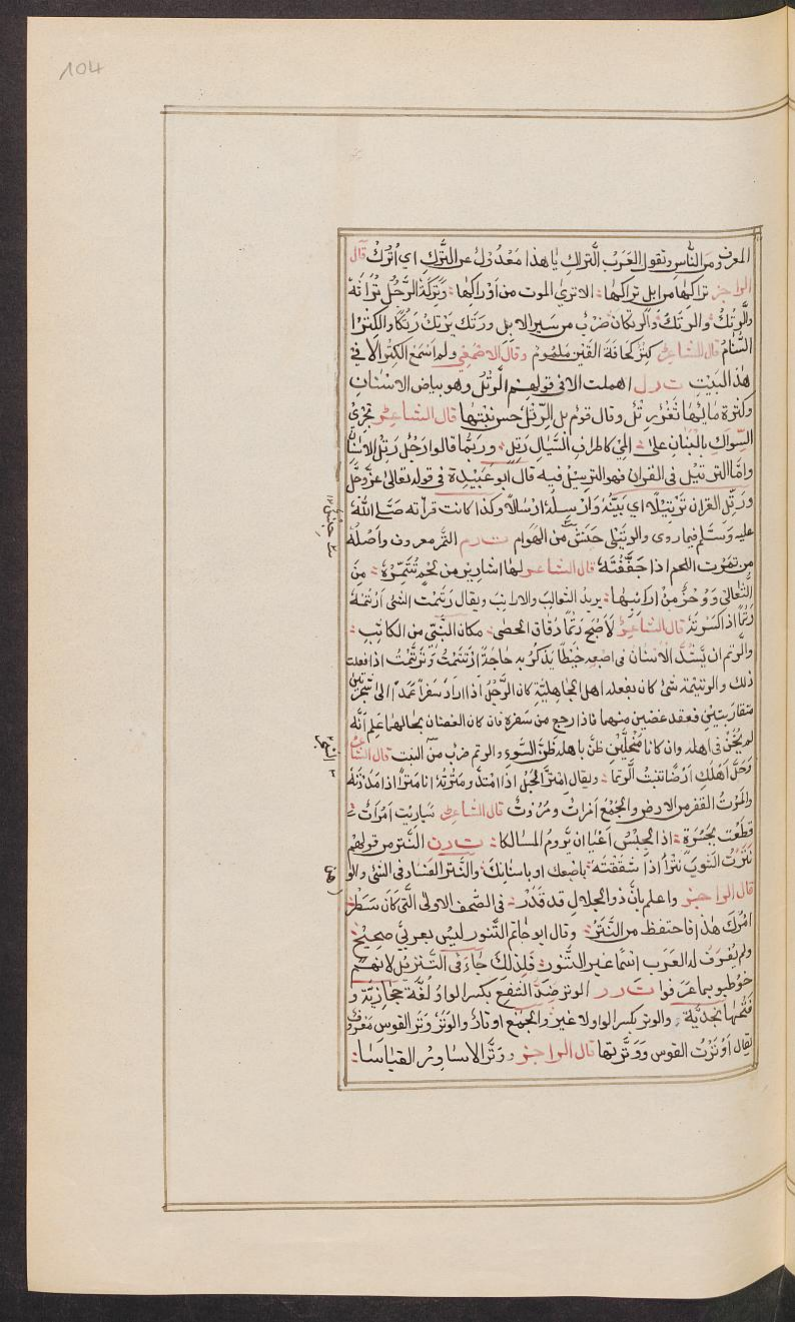 104
المعرف ومن الناس وتقول العَرَب التراك يا هذا مَعْدُولٌ عن التَّركِ اي اُتْرُكْ قال
الراجز تراكِهَا من ابلٍ تراكِهَا : الا ترى الموت من اَوْراكِهَا : وتَرِكَة الرَّجُل تُرَاثهُ
والرَّتْكُ والرتَكُ والرتكان ضرْبٌ من سَير الابل ورَتَك يَرْتِكُ رَتْكًا والكِتْرُ
السَّنَامُ قال الشاعر كِتْرٌ كحافَة القَيْنِ مَلْمُوم وقال الاصمعي ولم اَسْمَع الكِتْرَ الا في
هذا البَيْتِ ت ر ل اهملت الا في قولهم الرَّتَلُ وهو بياض الاسنان
وكثرة مائها ثَغْرٌ رتلٌ وقال قوم بل الرَّتَلُ حسن نبْتِها قال الشاعر تجري
السِّواك بالبَنان على : المى كاطراف السَّيالِ رَتِلِ : وربّما قالوا رَجُل رَتِلُ الاسنان
وامّا الترتيل في القرآن فهو الترسيل فيه قال ابو عُبَيْدة في قوله تعالى عزّ وجَلّ
ورَتِّل القران تَرْتِيلًا اي بَيّنْهُ وَاَرْسِلْهُ ارْسالًا وكذا كانت قرأته صَلّى اللّٰهُ
عليه وَسَلّم فيما روى والرُّتَيْلى جنس من الهَوام ت ر م التَّمر معروف واَصْلُهُ
من تَمَرْت اللحم اذا جَفَّفْتَهُ قال الشاعر لها اَشاريرُ من لحْمٍ تُتَمِّرُهُ : مِنَ
الثَّعالى وَوَخْزٌ مِنْ ارانيها : يريد الثعالبَ والارانبَ ويقال رَتَمْت الشئ اَرْتِمهُ
رَتْمًا اذا كسَرْتَهُ قال الشاعر لَاَصْبَحَ رَتْمًا دُقاق الحصى : مكان النَّبِيّ من الكاثِبِ :
والرتم ان يَشُدَّ الانسان في اصبعه خيْطًا يَذكُر به حاجةً اَرْتَمْتُ وترتّمْتُ اذا فعلت
ذلك والرتيمة شئ كان يفعله اهل الجاهليّة كان الرَّجُل اذا اراد سفرًا عمَدَ الى شجَرتين
متقاربتين فعقد غصنين منهما فاذا رجع من سفره فان كان الغصنان بحالهما عَلِم اَنَّه
لم يُخَنْ في اهله وان كانا مُنْحلَّينِ ظنَّ باهله ظنَّ السَّوء والرتم ضرب من النبت قال الشاعر
وَحَلَّ اَهْلُكِ اَرْضًا تنبتُ الرَّتما : ويقال امترَّ الحَبْل اذا امتدَّ ومَتَرْتُهُ انا مَتْرًا اذا مَدَدْتَهُ
والمَرْتُ القفر من الارض والجَمْع اَمْرات ومُرُوتٌ قال الشاعر سَباريت اَمْراتٍ
قطَعْت بجَسْرةٍ : اذا الجِبْسُ اَعْيا ان يَرُومَ المسالكا : ت ر ن النَّتر من قولهم
نَتَرْتُ الثوبَ نَتْرًا اذا شقَقْتَهُ باصْبعك او باسنانِك والنَّتَر الفَساد في الشئ
قال الراجز واعلم بانَّ ذو الجلالِ قد قَدَرْ : في الصُّحف الاولى الَّتي كَانَ سَطَرْ
اَمْرَكَ هٰذا فاحتفظ من النَّتَرْ : وقال ابو حاتم التَّنور ليس بعربيٍّ صحِيْح
ولم يَعْرفْ له العَرَب اسْمًا غير التّنّور : فلِذلكَ جاءَ في التّنْزِيْل لانّهم
خوطبو بما عَرَفوا ت ر ر الوتر ضِدّ الشفع بكسر الواو لُغَة حجازيّة و
فتحها نجديّة : والوتر بكسر الواو لا غير والجَمْع اوتار والوَتَرُ وَتَرُ القوس معروف
يقال اَوْتَرْت القوس وَوَتّرتها قال الراجز ووَتَّرَ الاساوِرُ القياسَا :